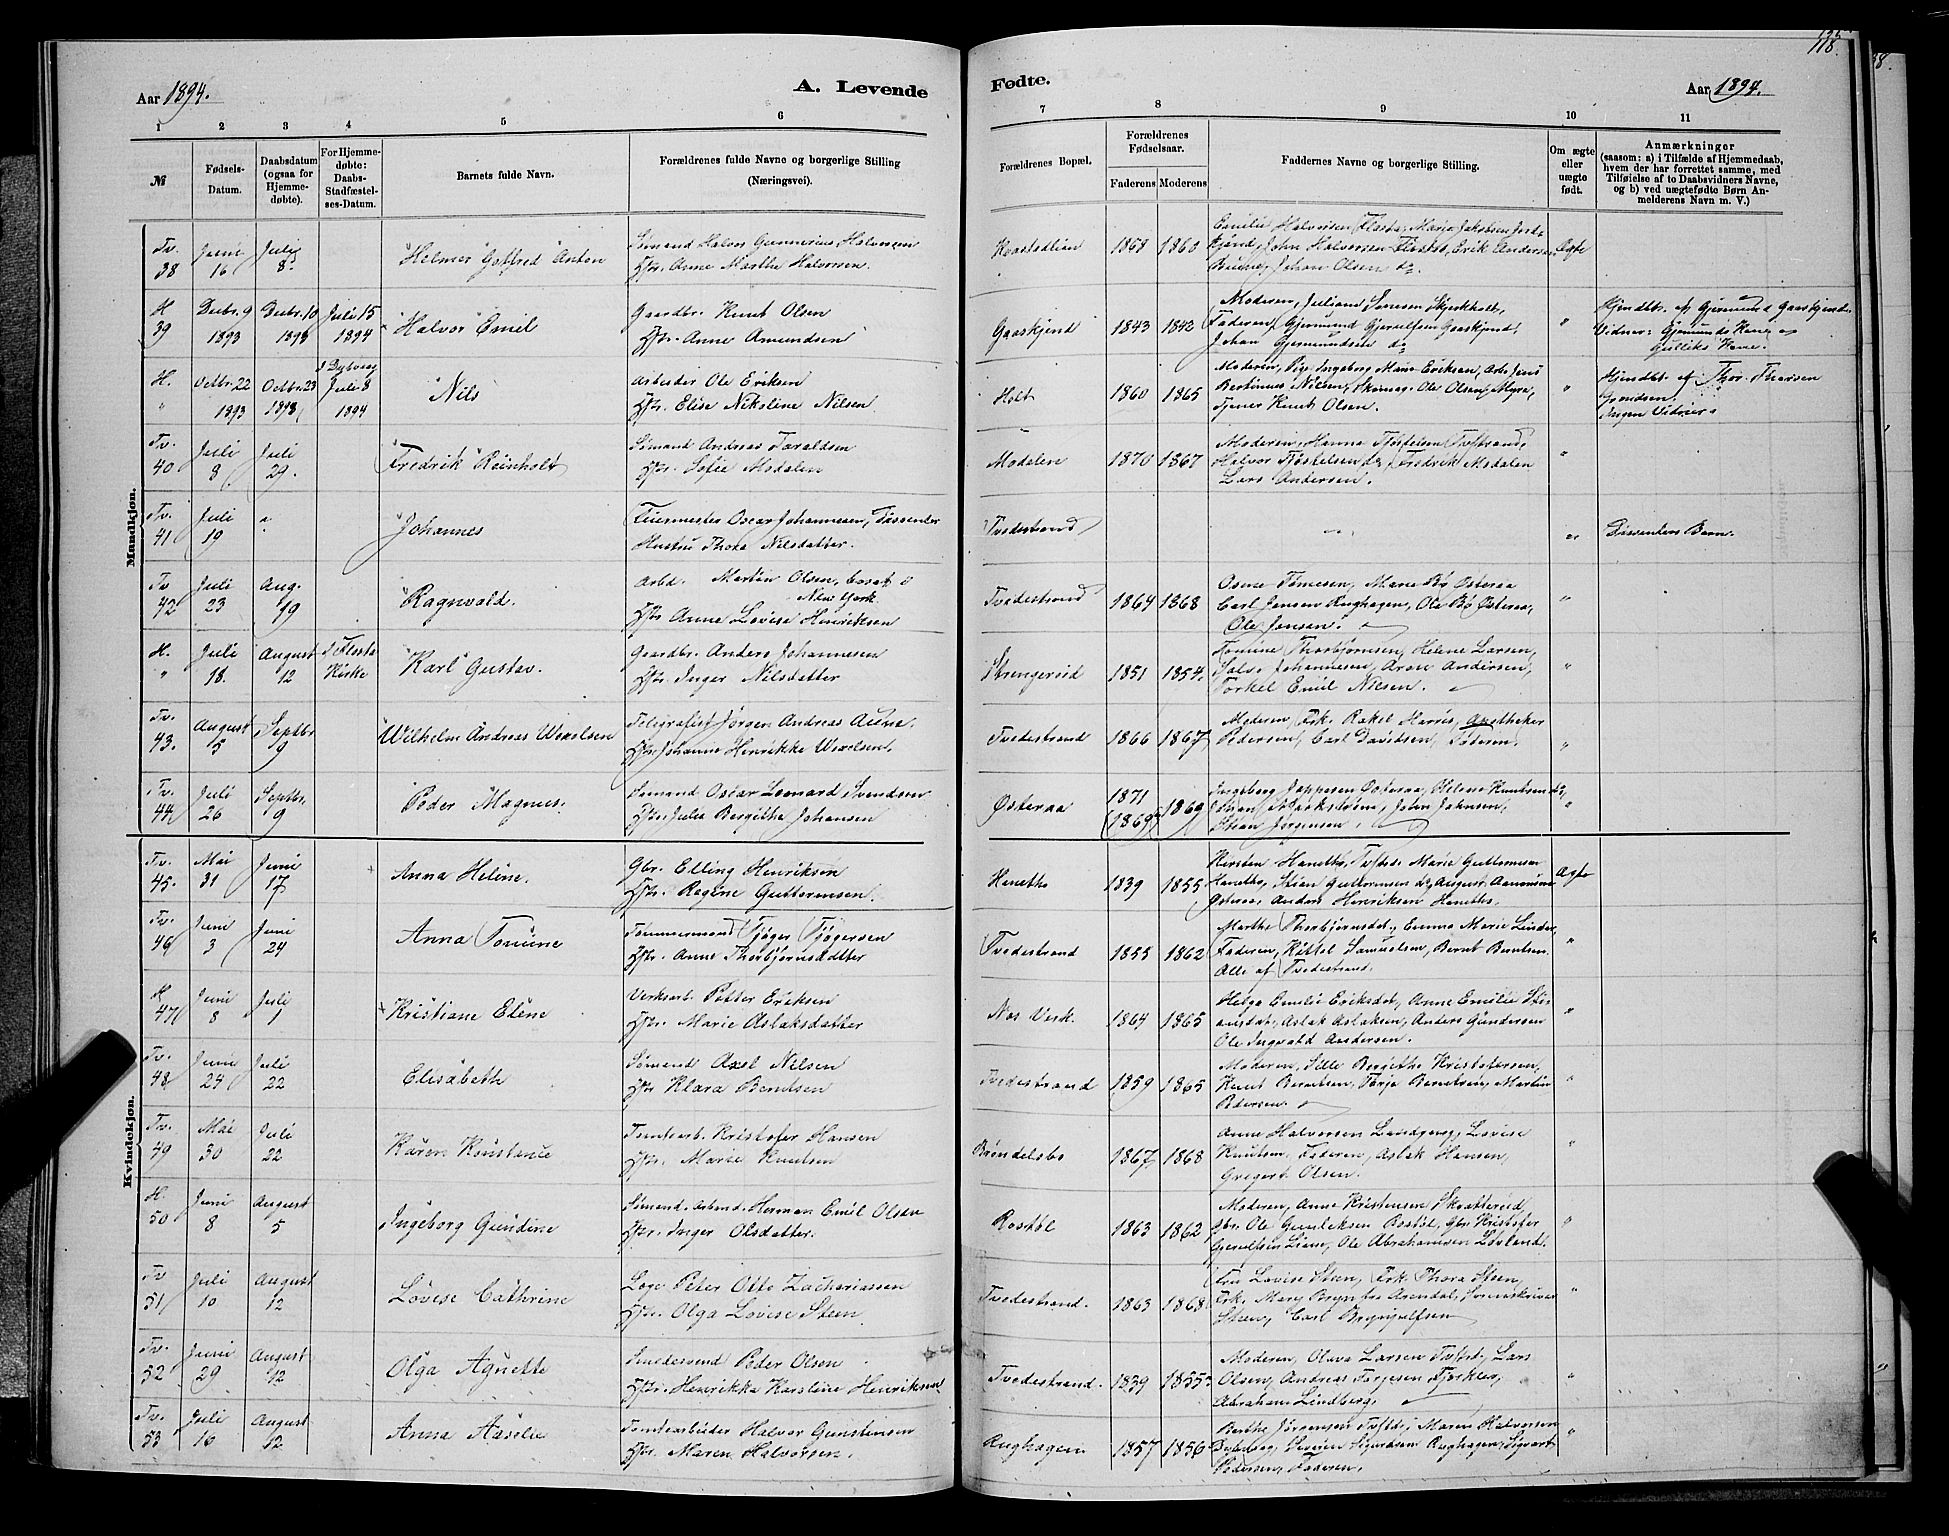 118.
Aar 1894.
A. Levende
Fødte.
Aar 1894.
1 2 3 4 5 6 7 8 9 10 11
№
Fødsels-
Datum.
Daabsdatum
(ogsaa for
Hjemme-
døbte).
For Hjemme-
døbte:
Daabs-
Stadfæstel-
ses-Datum.
Barnets fulde Navn.
Forældrenes fulde Navne og borgerlige Stilling
(Næringsvei).
Forældrenes Bopæl.
Forældrenes
Fødselsaar.
Faderens Moderens
Faddernes Navne og borgerlige Stilling.
Om ægte
eller
uægte
født.
Anmærkninger
(saasom: a) i Tilfælde af Hjemmedaab,
hvem der har forrettet samme, med
Tilføielse af to Daabsvidners Navne,
og b) ved uægtefødte Børn An-
melderens Navn m. V.)
Mandkjøn.
Tv. 38
Juni 16
Juli 8.
Helmer Gotfred Anton
Sømand Halvor Gunnerius Halvorsen
Hstr. Anne Marthe Halvorsen.
Kvastadlien
1868 1860
Emilie Halvorsen Flosta, Marie Jakobsen
John Halvorsen Flosta, Erik Andersen
Johan Olsen do
Ægte
H 39
Decbr. 9 1893
Decbr. 10 1893
Juli 15 1894
Halvor Emil
Gaardbr. Knut Olsen
Hstr. Anne Amundsen
Gaaskjend
1843 1842
Moderen, Juliane Sørensen Skjerkholt,
Faderen, Gjermund Gjerulfsen Gaaskjend,
Johan Gjermundsen do
"
Hjmdbt. af Gjermund Gaaskjend.
Vidner: Gjermunds Kone og
Gulliks Kone.
H. "
Octbr. 22 1893
Octbr. 23 1893
i Dybvaag Juli 8 1894
Nils
Arbeider Ole Eriksen
Hstr. Elise Nikoline Nilsen
Holt
1860 1865
Moderen, Pige Ingeborg Marie Eriksen, Arb. Jens
Berthinus Nielsen, Ole Olsen Myre,
Tjener Knut Olsen.
"
Hjmdbt. af Thor Thorsen
Ingen Vidner.
Tv. 40
Juli 8
Juli 29.
Fredrik Reinholt
Sømand Andreas Taraldsen
Hstr. Sofie Modalen
Modalen
1870 1867
Moderen, Hanna Tjøstelsen Tvdstrand,
Halvor Tjøstelsen do, Fredrik Modalen
Lars Andersen.
"
Tv. 41
Juli 19
"
Johannes
Feiermester Oscar Johannesen, Dissenter
Hustru Thora Nilsdatter.
Tvedestrand
"
"
Dissenters Barn.
Tv 42
Juli 23
Aug. 19
Ragnvald.
Arbd. Martin Olsen, bosat i
New York
Hstr. Anne Lovise Henriksen
Tvedestrand
1864 1868
Osene Tømesen, Marie Bø Østeraa
Carl Jensen Rughagen, Ole Bø Østeraa,
Ole Jensen.
"
H. "
Juli 18.
August 12
i Flosta Kirke
Karl Gustav.
Gaardbr. Anders Johannesen
Hstr. Inger Nilsdatter
Strengereid
1851 1854.
Tomine Thorbjørnsen, Helene Larsen,
Salve Johannesen, Aron Andersen,
Torkel Emil Nilsen.
"
Tv. 43.
August 5
Septbr. 9
Wilhelm Andreas Wexelsen
Telegrafist Jørgen Andreas Aune
Hstr. Johanne Henrikke Wexelsen.
Tvedestrand
1866 1867
Moderen, Frk. Rakel Harris, Apotheker
Pedersen, Carl Davidsen, Faderen.
"
Tv. 44
Juli 26
Septbr. 9
Peder Magnus.
Sømand Oscar Leonard Svendsen
Hstr. Julia Bergithe Johansen
Østeraa
1871 (1869) 1869
Ingeborg Jeppesen Østeraa, Helene Knutsen do,
John Johnsen,
Stian Jørgensen.
"
Kvindekjøn.
Tv. 45.
Mai 31
Juni 17
Anna Helene.
Gbr. Elling Henriksen
Hstr. Ragine Guttormsen.
Hanetho
1839 1855
Kirsten Hanetho, Tvdstr. Marie Guttormsen
Hanetho, Stian Guttormsen do, August Aanonsen
Østeraa, Anders Henriksen Hanetho.
Ægte
Tv. 46
Juni 3
Juni 24
Anna Tomine
Tømmermand Tjøger Tjøgersen
Hstr. Anne Thorbjørnsdatter
Tvedestrand
1855 1862
Marthe Thorbjørnsdt., Emma Marie Linder,
Faderen, Kittel Samuelsen, Bernt Berntsen
Alle af Tvedestrand.
"
H 47
Juni 8
Juli 1
Kristiane Elene
Verksarb. Petter Eriksen
Hstr. Marie Aslaksdatter
Næs Verk.
1864 1865
Helga Emelie Eriksdat., Anne Emilie Sti-
ansdat., Aslak Aslaksen, Anders Gundersen
Ole Ingvald Andersen.
"
Tv. 48
Juni 24
Juli 22
Elisabeth
Sømand Axel Nilsen
Hstr Klara Berntsen
Tvedestrand
1859 1865
Moderen, Sille Bergithe Kristofersen,
Knut Berntsen, Tarje Berntsen, Martin
Pedersen.
"
Tv. 49
Mai 30
Juli 22
Karen Konstance
Tomtearb. Kristofer Hansen
Hstr. Marie Knutsen
Brøndelsbo
1867 1868
Anne Halvorsen Lovise
Knutsen, Faderen, Aslak Hansen,
Gregert Olsen.
"
H. 50
Juni 8
August 5
Ingeborg Gundine
Sømand Arbmd. Herman Emil Olsen
Hstr. Inger Olsdatter.
Rostøl
1863 1862
Moderen, Anne Kristensen Skratterud,
Gbr. Ole Gunleksen Rostøl, Gbr Kristofer
Gjerulfsen Liane, Ole Abrahamsen Løvland.
"
Tv 51
Juli 10
August 12
Lovise Cathrine
Loge Peter Otto Zachariassen
Hstr. Olga Lovise Steen
Tvedestrand.
1863 1868
Fru Lovise Steen, Frk. Thora Steen,
Frk. Mary Arendal, Sorenskriver
Steen, Carl Brynjulfsen
"
Tv. 52
Juni 29
August 12
Olga Agnette
Smedesvend Peder Olsen
Hstr. Henrikka Karoline Henriksen
Tvedestrand.
1839 1855
Moderen, Olava Larsen Tvdst., Lars
Olsen, Andreas Torjesen
Abraham Lindberg.
"
Tv. 53
Juli 16
August 12
Anna Aaselie
Tomtearbeider Halvor Gunstensen
Hstr. Maren Halvorsen.
Rughagen
1857 1856
Berthe Jørgensen Tvdstr, Maren Halvorsen
Dybvaag, Severin Sigurdsen Rughagen, Sigvart
Pedersen, Faderen.
"